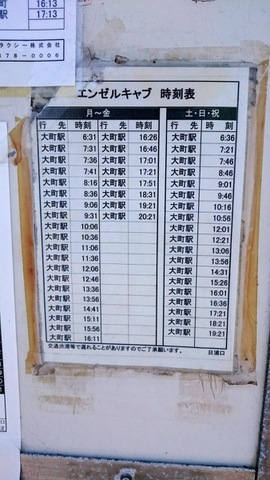 町 16:13
駅 17:13
タクシー株式会社
478-0006
エンゼルキャブ 時刻表
月～金 土・日・祝
行先 時刻 行先 時刻 行先 時刻
大町駅 6:31 大町駅 16:26 大町駅 6:36
大町駅 7:31 大町駅 16:46 大町駅 7:21
大町駅 7:36 大町駅 17:01 大町駅 7:46
大町駅 7:41 大町駅 17:21 大町駅 8:46
大町駅 8:16 大町駅 17:51 大町駅 9:01
大町駅 8:36 大町駅 18:31 大町駅 9:46
大町駅 9:06 大町駅 19:21 大町駅 10:16
大町駅 9:31 大町駅 20:21 大町駅 10:56
大町駅 10:06 大町駅 12:01
大町駅 10:36 大町駅 12:21
大町駅 11:06 大町駅 13:06
大町駅 11:36 大町駅 13:56
大町駅 12:06 大町駅 14:31
大町駅 12:46 大町駅 15:26
大町駅 13:36 大町駅 16:01
大町駅 13:56 大町駅 16:36
大町駅 14:41 大町駅 17:21
大町駅 15:11 大町駅 18:21
大町駅 15:56 大町駅 19:21
大町駅 16:11
交通渋滞等で遅れることがありますのでご了承願います。 日湯口